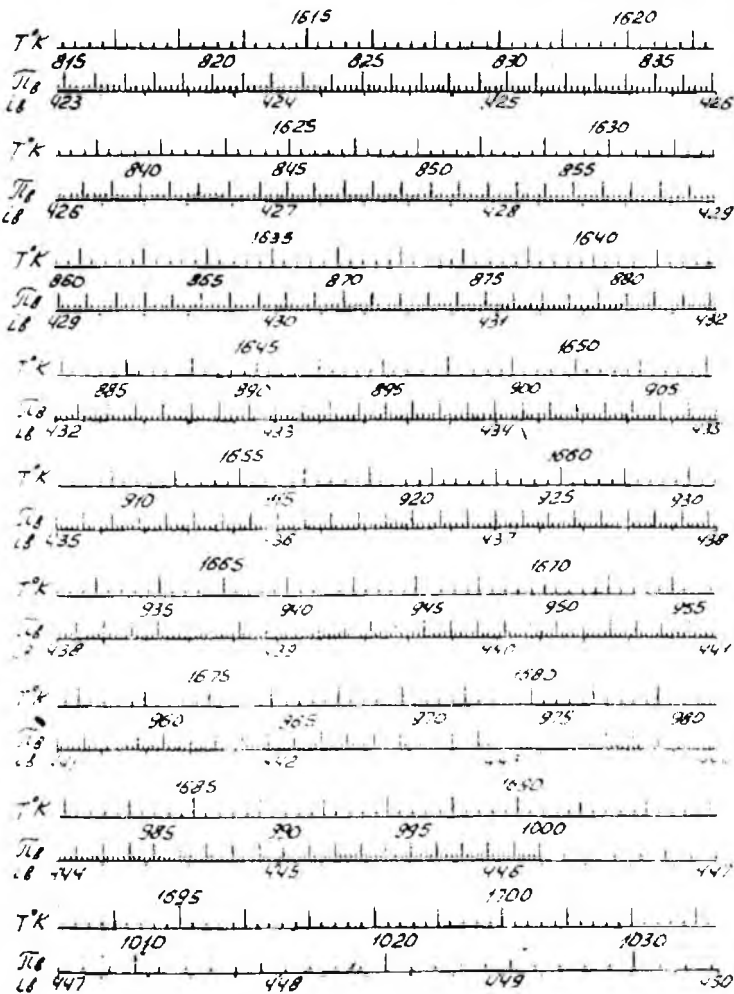 1615 1620
T°K
815 820 825 830 835
πв
iв 423 424 425 426
1625 1630
T°K
840 845 850 855
πв
iв 426 427 428 429
1635 1640
T°K
860 865 870 875 880
πв
iв 429 430 431 432
1645 1650
T°K
885 890 895 900 905
πв
iв 432 433 434 435
1655 1660
T°K
910 915 920 925 930
πв
iв 435 436 437 438
1665 1670
T°K
935 940 945 950 955
πв
438 439 440 441
1675 1680
T°K
960 965 970 975 980
πв
iв 442 443
1685 1690
T°K
985 990 995 1000
πв
iв 444 445 446 447
1695 1700
T°K
1010 1020 1030
πв
iв 447 448 449 450